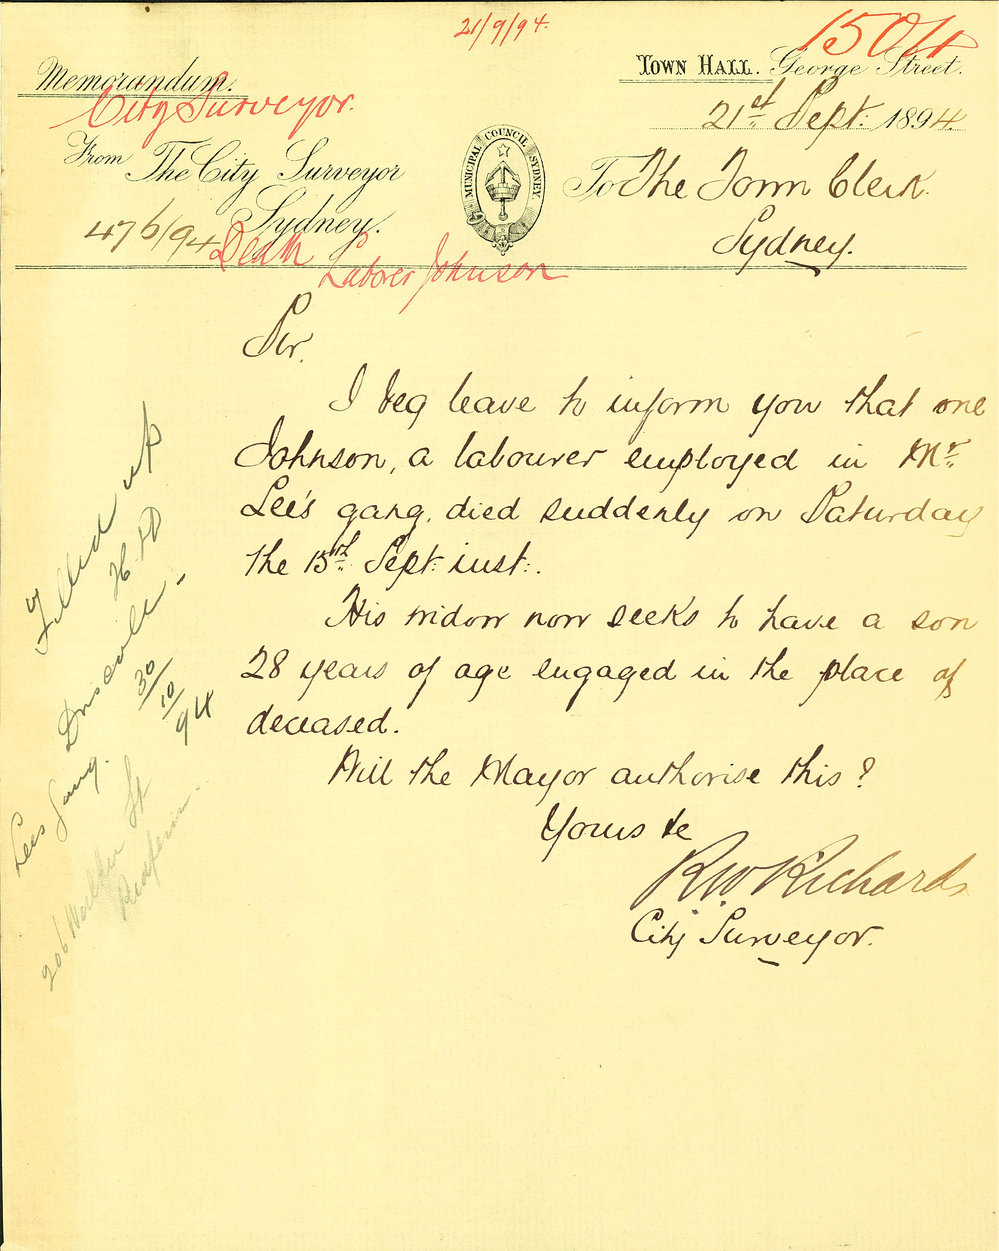 21/9/94.
1504
Memorandum.
TOWN HALL. George Street.
City Surveyor.
21st Sept: 1894.
From The City Surveyor
MUNICIPAL COUNCIL SYDNEY.
To The Town Clerk.
Sydney.
Sydney.
476/94
Death
Laborer Johnson
Sir,
I beg leave to inform you that one
Johnson, a labourer employed in Mr.
Lee's gang, died suddenly on Saturday
the 15th. Sept: inst:.
His widow now seeks to have a son
28 years of age engaged in the place of
deceased.
Will the Mayor authorise this?
Yours &c
R W Richards
City Surveyor.
Filled up
Driscoll
30/10/94
Lees Gang.
206 Walker St
Redfern.